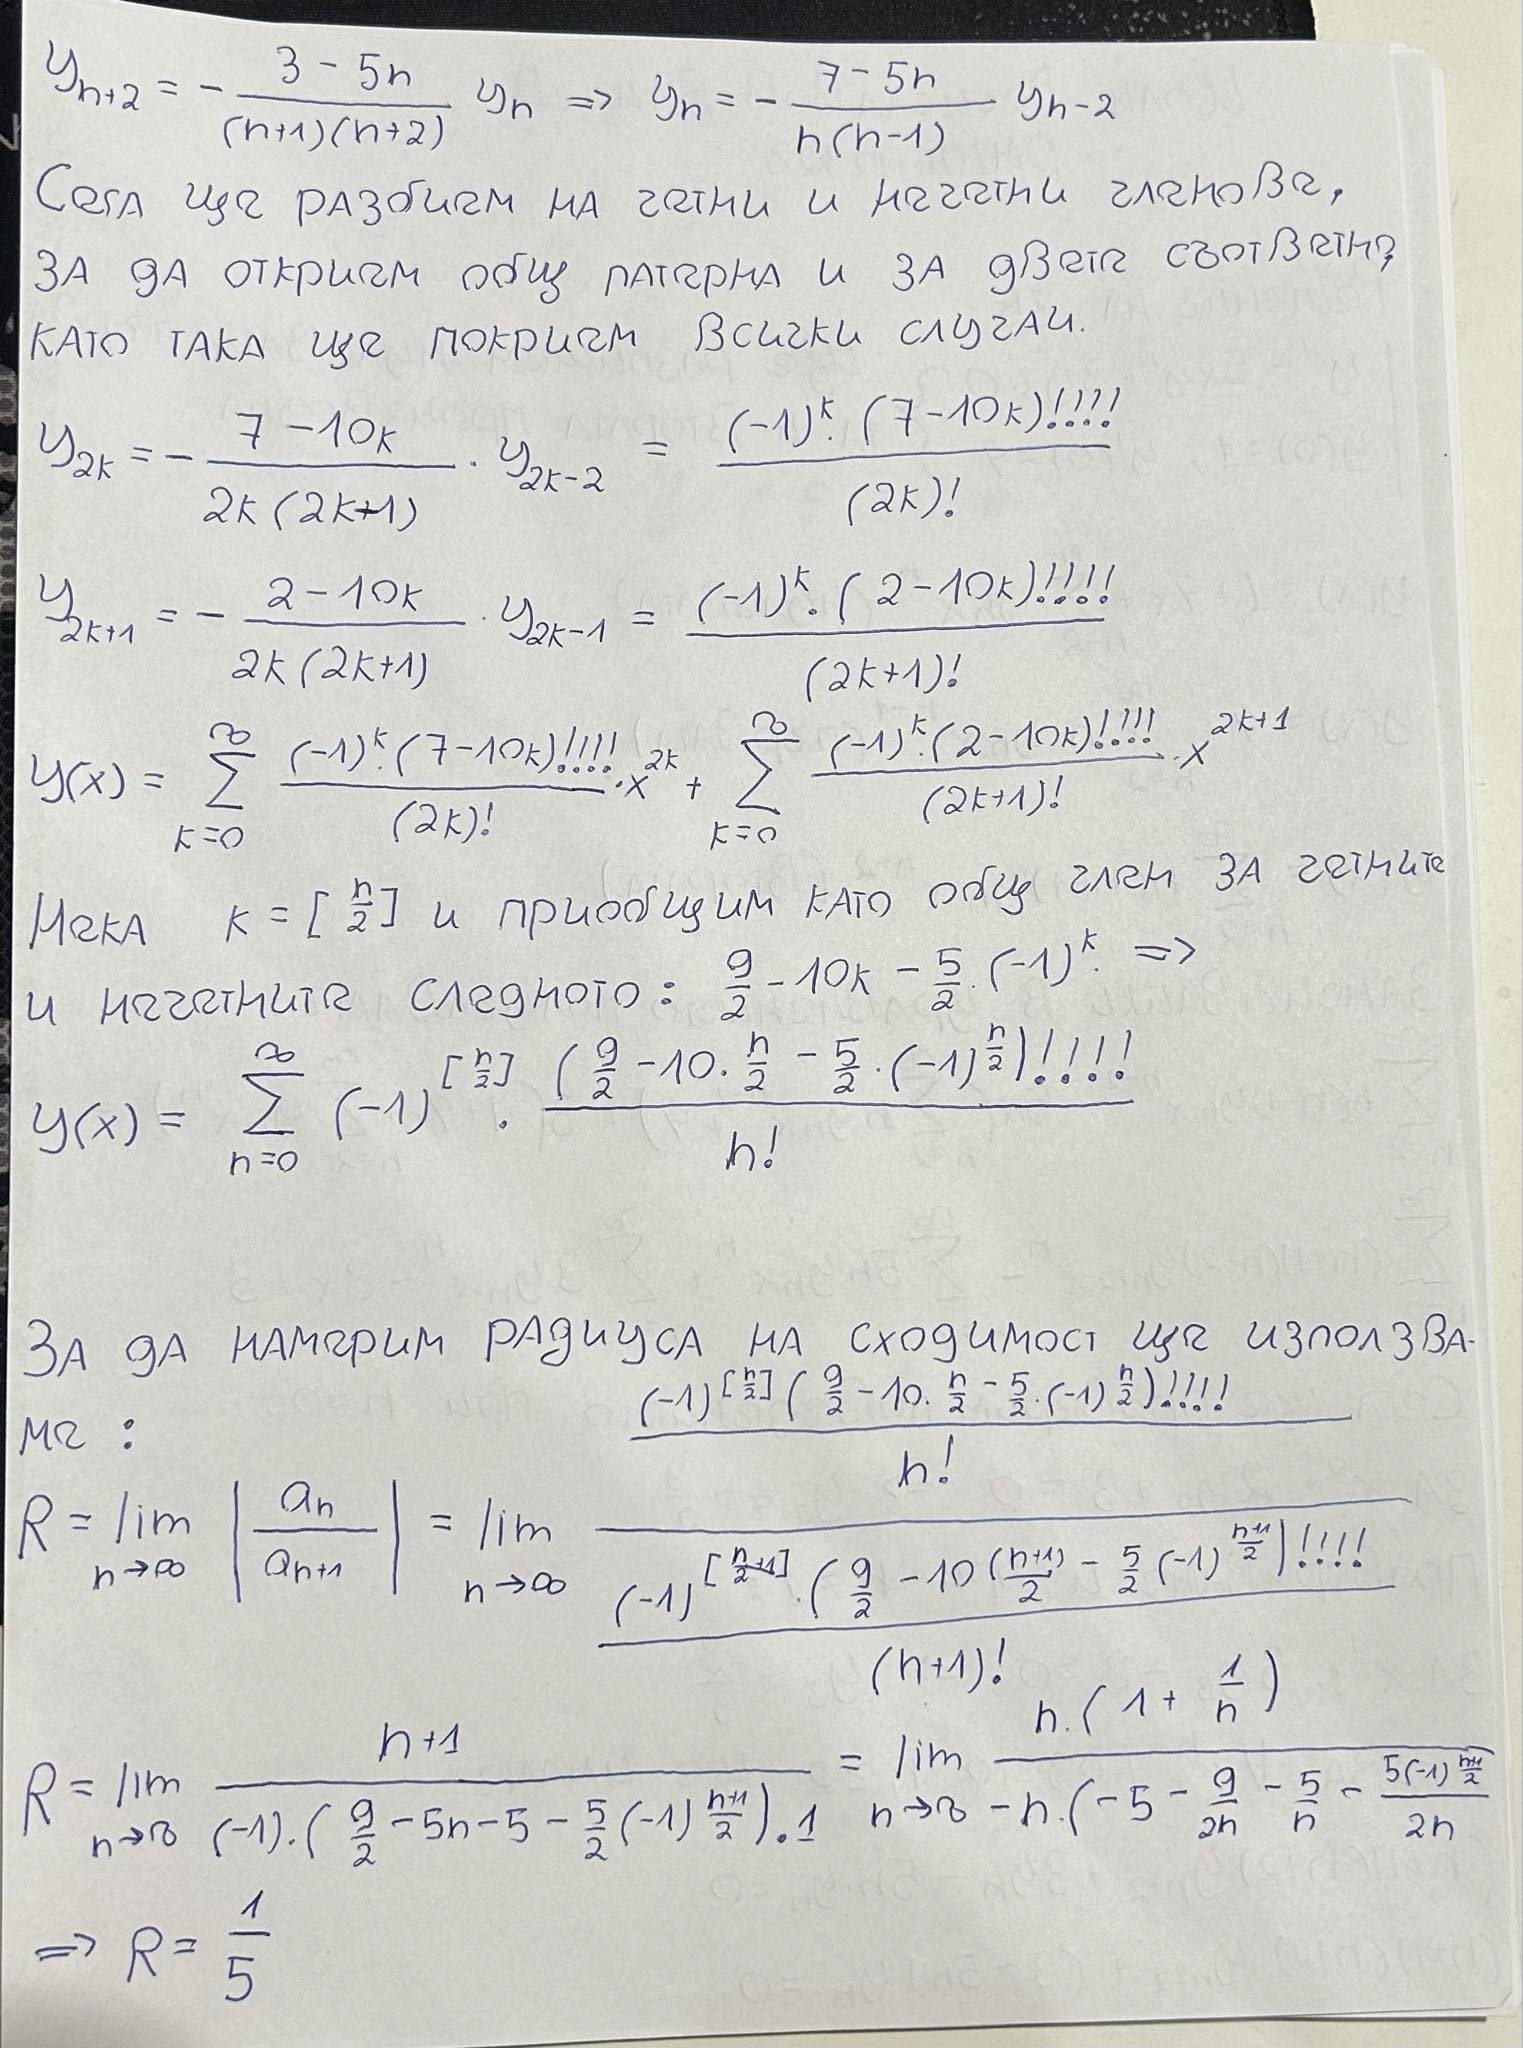 y_{n+2} = - \frac{3-5n}{(n+1)(n+2)} y_n => y_n = - \frac{7-5n}{n(n-1)} y_{n-2}
Сега ще разбием на четни и нечетни членове,
за да открием общ патерна и за двете съответно,
като така ще покрием всички случаи.
y_{2k} = - \frac{7-10k}{2k(2k+1)} . y_{2k-2} = \frac{(-1)^k . (7-10k)!!!!!}{(2k)!}
y_{2k+1} = - \frac{2-10k}{2k(2k+1)} . y_{2k-1} = \frac{(-1)^k . (2-10k)!!!!!}{(2k+1)!}
y(x) = \sum_{k=0}^{∞} \frac{(-1)^k . (7-10k)!!!!!}{(2k)!} . x^{2k} + \sum_{k=0}^{∞} \frac{(-1)^k . (2-10k)!!!!!}{(2k+1)!} . x^{2k+1}
Нека k = [\frac{n}{2}] и приобщим като общ член за четните
и нечетните следното: \frac{9}{2} - 10k - \frac{5}{2} . (-1)^k. =>
y(x) = \sum_{n=0}^{∞} (-1)^{[\frac{n}{2}]} . \frac{(\frac{9}{2} - 10 . \frac{n}{2} - \frac{5}{2} . (-1)^{\frac{n}{2}})!!!!!}{n!}
За да намерим радиуса на сходимост ще използва-
ме:
R = lim_{n→∞} |\frac{a_n}{a_{n+1}}| = lim_{n→∞} \frac{\frac{(-1)^{[\frac{n}{2}]} (\frac{9}{2} - 10 . \frac{n}{2} - \frac{5}{2} . (-1)^{\frac{n}{2}})!!!!!}{n!}}{\frac{(-1)^{[\frac{n}{2}+1]} . (\frac{9}{2} - 10 \frac{(n+1)}{2} - \frac{5}{2} (-1)^{\frac{n+1}{2}})!!!!!}{(n+1)!}}
R = lim_{n→∞} \frac{n+1}{(-1) . (\frac{9}{2} - 5n - 5 - \frac{5}{2} (-1)^{\frac{n+1}{2}}) . 1} = lim_{n→∞} \frac{n . (1 + \frac{1}{n})}{-n . (-5 - \frac{9}{2n} - \frac{5}{n} - \frac{5(-1)^{\frac{n+1}{2}}}{2n}}
=> R = \frac{1}{5}